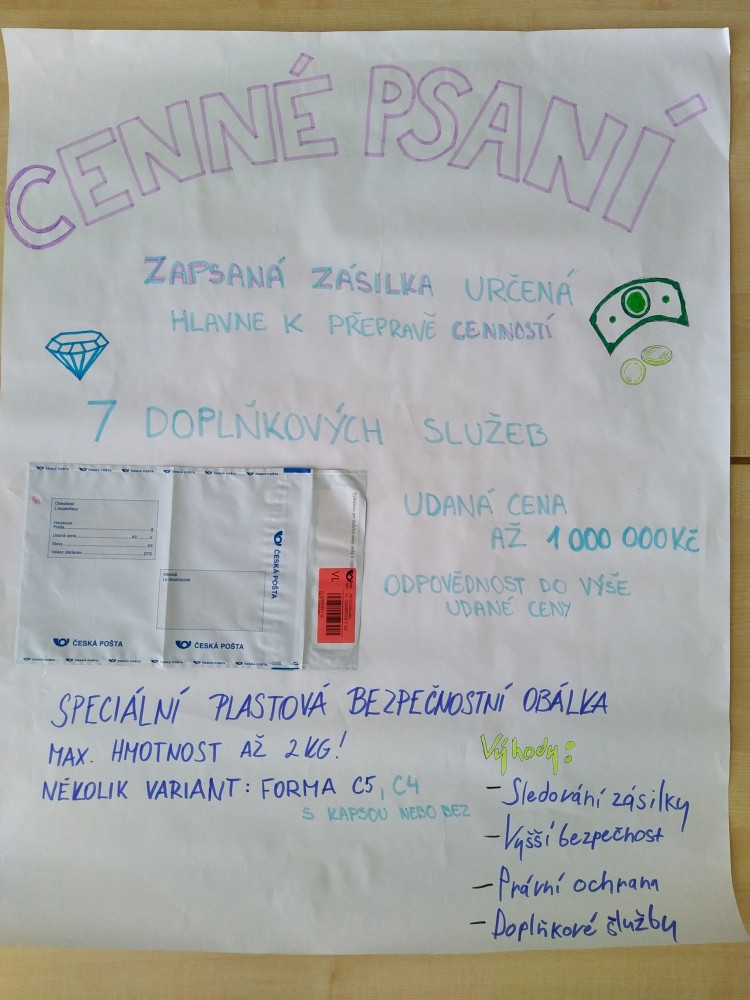 CENNÉ PSANÍ
ZAPSANÁ ZÁSILKA URČENÁ
HLAVNE K PŘEPRAVĚ CENNOSTÍ
7 DOPLŇKOVÝCH SLUŽEB
ČESKÁ POŠTA
Odesílatel
L'expéditeur
Hmotnost
Udaná cena
Adresát
Le destinataire
ČESKÁ POŠTA
VL
ČESKÁ POŠTA
ČESKÁ POŠTA
UDANÁ CENA
AŽ 1 000 000 Kč
ODPOVĚDNOST DO VÝŠE
UDANÉ CENY
SPECIÁLNÍ PLASTOVÁ BEZPEČNOSTNÍ OBÁLKA
MAX. HMOTNOST AŽ 2KG!
NĚKOLIK VARIANT: FORMA C5, C4
S KAPSOU NEBO BEZ
Výhody:
- Sledování zásilky
- Vyšší bezpečnost
- Právní ochrana
- Doplňkové služby